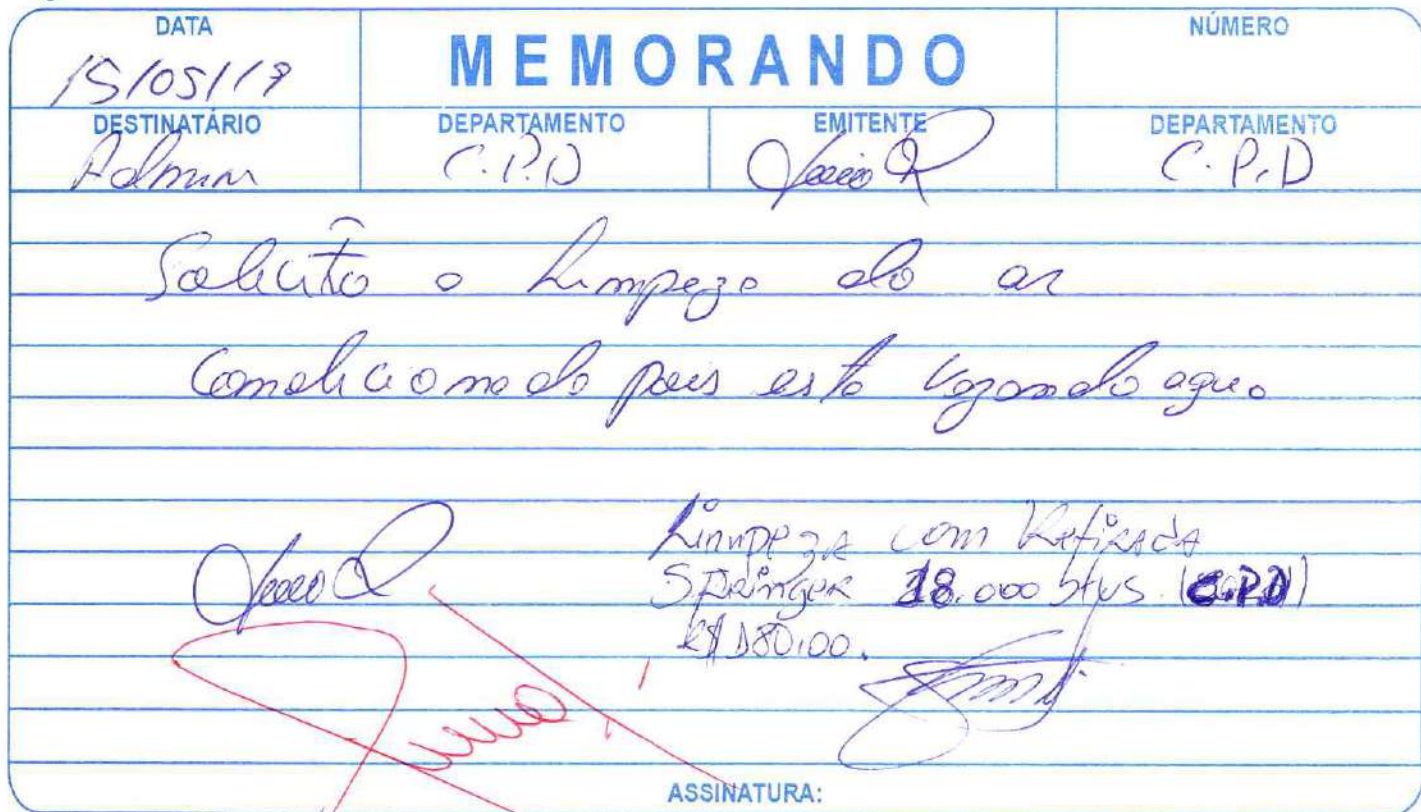 DATA
MEMORANDO
NÚMERO
15/05/19
DESTINATÁRIO
DEPARTAMENTO
EMITENTE
DEPARTAMENTO
Admin
C.P.D
C.P.D
Solicito a Limpeza do ar
Condicionado pois esta vazando agua
Limpeza com Retirada
Springer 18.000 btus (C.P.D)
R$ 180,00.
ASSINATURA: